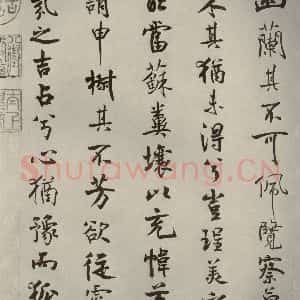 幽蘭其不可佩覽察草
木其猶未得兮豈珵美之
能當蘇糞壤以充幃兮
謂申椒其不芳欲從靈
氛之吉占兮心猶豫而狐
Shufawang.CN